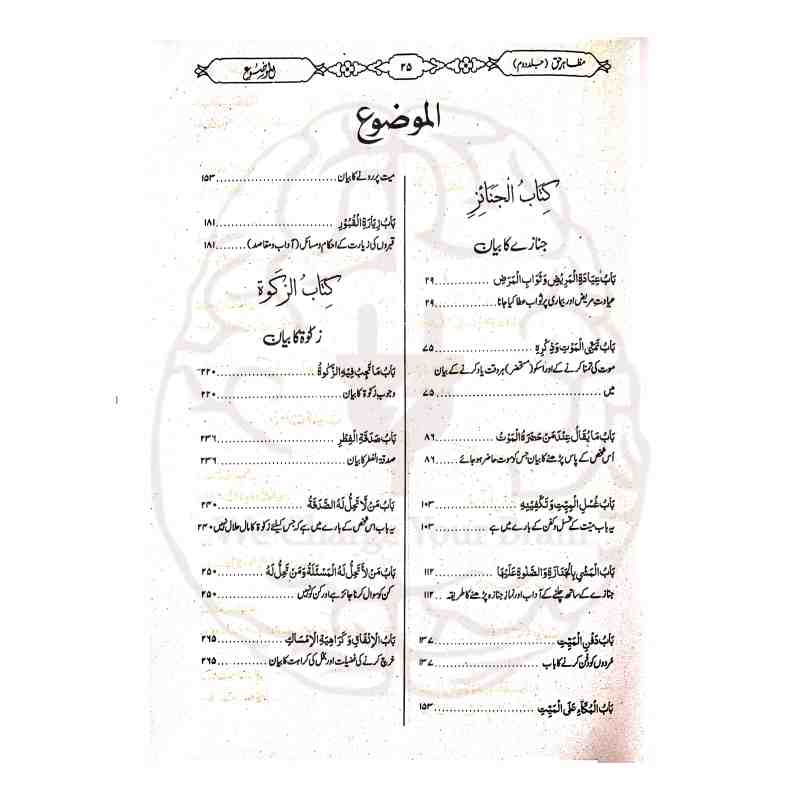 مظاہر حق (جلد دوم)
۲۵
الموضوع
الموضوع
كِتَابُ الْجَنَائِزِ
جنازے کا بیان
بَابُ عِيَادَةِ الْمَرِيْضِ وَثَوَابِ الْمَرَضِ ............ ۲۹
عیادت مریض اور بیماری پر ثواب عطا کیا جانا ............ ۲۹
بَابُ تَمَنِّي الْمَوْتِ وَذِكْرِهٖ ............ ۷۵
موت کی تمنا کرنے کے اور اسکو (مستحضر) ہر وقت یاد کرنے کے بیان
میں ............ ۷۵
بَابُ مَا يُقَالُ عِنْدَ مَنْ حَضَرَهُ الْمَوْتُ ............ ۸۶
اُس شخص کے پاس پڑھنے کا بیان جس کو موت حاضر ہو جائے .. ۸۶
بَابُ غُسْلِ الْمَيِّتِ وَتَكْفِيْنِهٖ ............ ۱۰۳
یہ باب میت کے غسل و کفن کے بارے میں ہے ............ ۱۰۳
بَابُ الْمَشْيِ بِالْجَنَازَةِ وَالصَّلٰوةِ عَلَيْهَا ............ ۱۱۲
جنازے کے ساتھ چلنے کے آداب اور نماز جنازہ پڑھنے کا طریقہ .. ۱۱۲
بَابُ دَفْنِ الْمَيِّتِ ............ ۱۳۷
مُردوں کو دفن کرنے کا باب ............ ۱۳۷
بَابُ الْبُكَاءِ عَلَى الْمَيِّتِ ............ ۱۵۳
میت پر رونے کا بیان ............ ۱۵۳
بَابُ زِيَارَةِ الْقُبُوْرِ ............ ۱۸۱
قبروں کی زیارت کے احکام و مسائل (آداب و مقاصد) ........ ۱۸۱
كِتَابُ الزَّكٰوة
زکوٰۃ کا بیان
بَابُ مَا تَجِبُ فِيْهِ الزَّكٰوةُ ............ ۲۲۰
وجوب زکوٰۃ کا بیان ............ ۲۲۰
بَابُ صَدَقَةِ الْفِطْرِ ............ ۲۳۶
صدقۃ الفطر کا بیان ............ ۲۳۶
بَابُ مَنْ لَا تَحِلُّ لَهُ الصَّدَقَةُ ............ ۲۴۰
یہ باب اس شخص کے بارے میں ہے کہ جس کیلئے زکوٰۃ کا مال حلال نہیں ۲۴۰
بَابُ مَنْ لَا تَحِلُّ لَهُ الْمَسْئَلَةُ وَمَنْ تَحِلُّ لَهُ ............ ۲۵۰
کن کو سوال کرنا جائز ہے اور کن کو نہیں ............ ۲۵۰
بَابُ الْاِنْفَاقِ وَكَرَاهِيَةِ الْاِمْسَاكِ ............ ۲۶۵
خرچ کرنے کی فضیلت اور بخل کی کراہت کا بیان ............ ۲۶۵